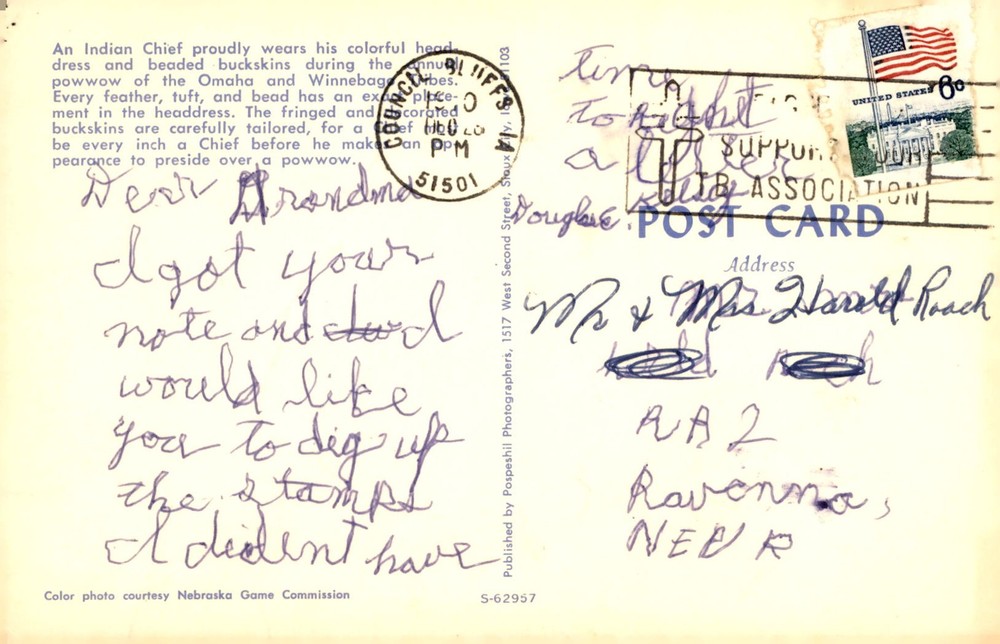 An Indian Chief proudly wears his colorful head-
dress and beaded buckskins during the annual
powwow of the Omaha and Winnebago tribes.
Every feather, tuft, and bead has an exact place-
ment in the headdress. The fringed and decorated
buckskins are carefully tailored, for a Chief must
be every inch a Chief before he makes an ap-
pearance to preside over a powwow.
Dear Grandma
I got your
note and I
would like
you to dig up
the stamps
I dident have
time
to
a letter
Douglas
Color photo courtesy Nebraska Game Commission
S-62957
Published by Pospeshil Photographers, 1517 West Second Street, Sioux
COUNCIL BLUFFS IA
PM
51501
UNITED STATES 6c
SUPPORT YOUR
TB ASSOCIATION
POST CARD
Address
Mr & Mrs. Harold Roach
RR 2
Ravenna,
NEBR